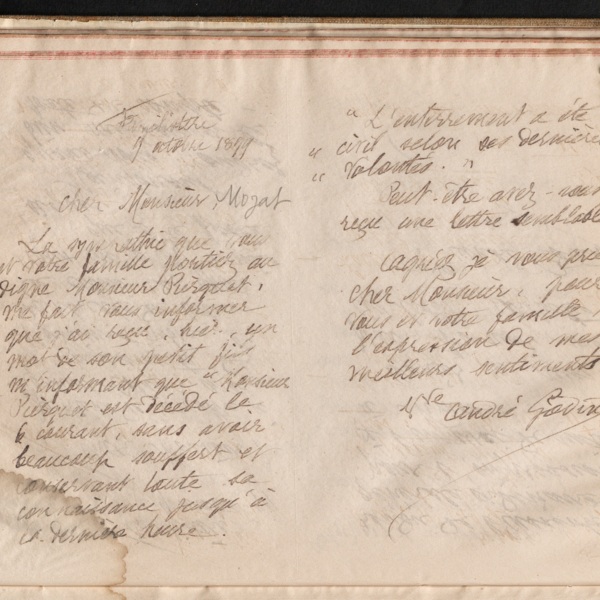 Familistère
9 octobre 1899
cher Monsieur Mozat
La sympathie que vous
et votre famille portiez au
digne Monsieur Piergeot,
me fait vous informer
que j'ai reçu, hier, un
mot de son petit fils
m'informant que "Monsieur
Piergeot est décédé le
6 courant, sans avoir
beaucoup souffert et
conservant toute sa
connaissance jusqu'à
la dernière heure.
" L'enterrement a été
" civil selon ses dernières
" volontés. "
Peut-être avez-vous
reçu une lettre semblable
agréez je vous prie
cher Monsieur, pour
vous et votre famille,
l'expression de mes
meilleurs sentiments
Vve André Godin